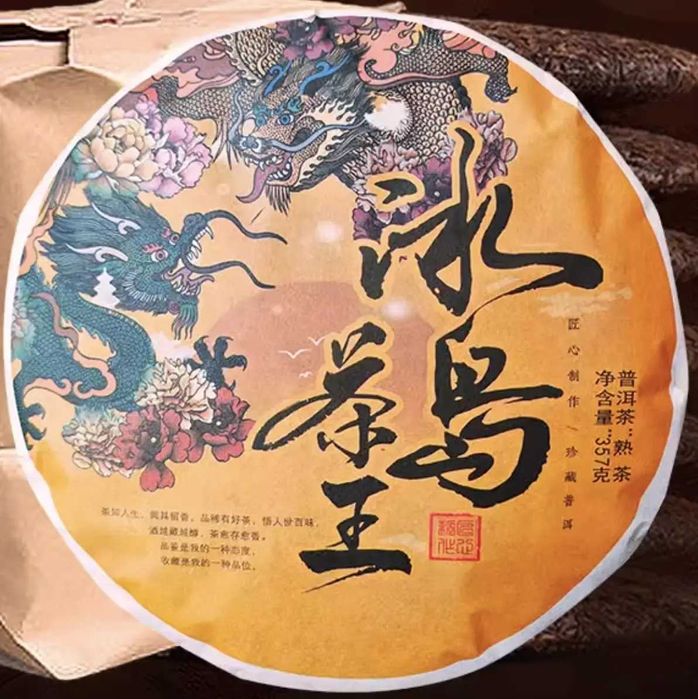 冰岛
茶王
普洱茶:熟茶
净含量:357克
匠心制作/珍藏普洱
茶如人生,其留香。品稀有好茶,悟人世百味,
酒越藏越醇,茶愈存愈香。
品鉴是我的一种态度,
收藏是我的一种品位。